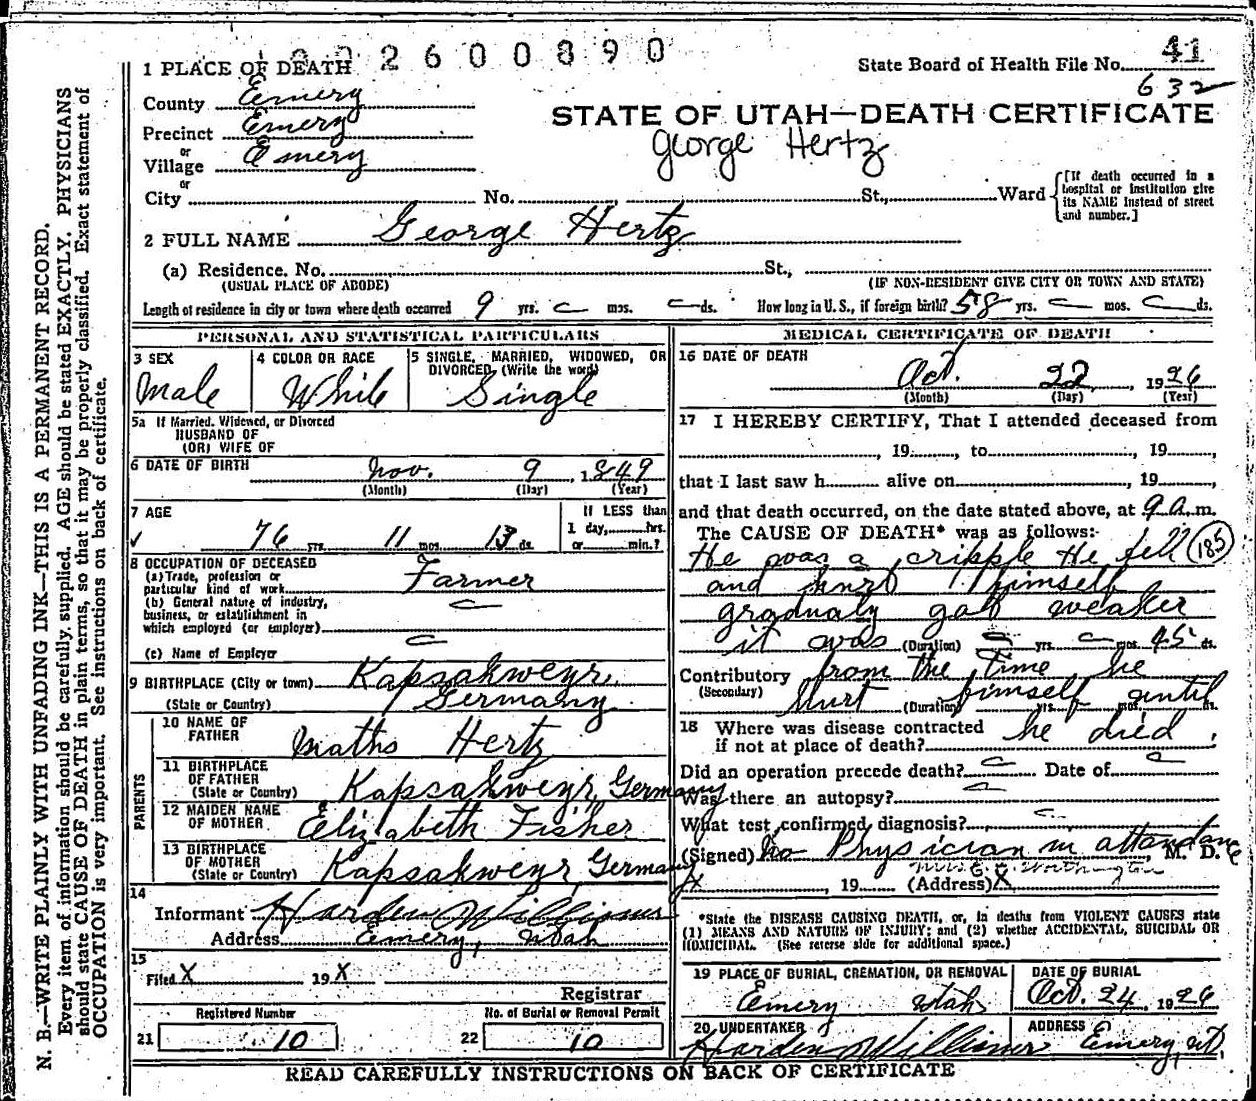 2600890
1 PLACE OF DEATH
State Board of Health File No. 41
632
County Emery
STATE OF UTAH—DEATH CERTIFICATE
Precinct Emery
George Hertz
or
Village Emery
or
City No. St., Ward
[If death occurred in a hospital or institution give its NAME instead of street and number.]
2 FULL NAME George Hertz
(a) Residence. No. St.,
(USUAL PLACE OF ABODE) (IF NON-RESIDENT GIVE CITY OR TOWN AND STATE)
Length of residence in city or town where death occurred 9 yrs. mos. ds. How long in U. S., if foreign birth? 58 yrs. mos. ds.
PERSONAL AND STATISTICAL PARTICULARS
3 SEX
Male
4 COLOR OR RACE
White
5 SINGLE, MARRIED, WIDOWED, OR DIVORCED (Write the word)
Single
5a If Married, Widowed, or Divorced
HUSBAND OF
(OR) WIFE OF
6 DATE OF BIRTH Nov. 9, 1849
(Month) (Day) (Year)
7 AGE
76 yrs. 11 mos. 13 ds.
If LESS than
1 day, hrs.
or min.?
8 OCCUPATION OF DECEASED
(a) Trade, profession or
particular kind of work Farmer
(b) General nature of industry,
business, or establishment in
which employed (or employer)
(c) Name of Employer
9 BIRTHPLACE (City or town) Kapsakweyr,
(State or Country) Germany
PARENTS
10 NAME OF
FATHER Maths Hertz
11 BIRTHPLACE
OF FATHER
(State or Country) Kapsakweyr, Germany
12 MAIDEN NAME
OF MOTHER Elizabeth Fisher
13 BIRTHPLACE
OF MOTHER
(State or Country) Kapsakweyr, Germany
14
Informant Harden Williams
Address Emery, Utah
15
Filed X 19X
Registrar
Registered Number
21 10
No. of Burial or Removal Permit
22 10
MEDICAL CERTIFICATE OF DEATH
16 DATE OF DEATH
Oct. 22, 1926
(Month) (Day) (Year)
17 I HEREBY CERTIFY, That I attended deceased from
, 19 , to , 19 ,
that I last saw h alive on , 19 ,
and that death occurred, on the date stated above, at 9 a.m.
The CAUSE OF DEATH* was as follows:-
He was a cripple He fell (185)
and hurt himself
gradualy got weaker
it was (Duration) yrs. mos. 45 ds.
Contributory from the time he
(Secondary) Hurt (Duration) himself yrs. mos. until ds.
18 Where was disease contracted
if not at place of death? he died.
Did an operation precede death? Date of
Was there an autopsy?
What test confirmed diagnosis?
(Signed) No Physician in attendance, M. D.
, 19 (Address) X
*State the DISEASE CAUSING DEATH, or, in deaths from VIOLENT CAUSES state
(1) MEANS AND NATURE OF INJURY; and (2) whether ACCIDENTAL, SUICIDAL OR
HOMICIDAL. (See reverse side for additional space.)
19 PLACE OF BURIAL, CREMATION, OR REMOVAL
Emery Utah
DATE OF BURIAL
Oct. 24, 1926
20 UNDERTAKER
Harden Williams
ADDRESS
Emery, Ut,
READ CAREFULLY INSTRUCTIONS ON BACK OF CERTIFICATE
N. B.—WRITE PLAINLY WITH UNFADING INK—THIS IS A PERMANENT RECORD.
Every item of information should be carefully supplied. AGE should be stated EXACTLY. PHYSICIANS
should state CAUSE OF DEATH in plain terms, so that it may be properly classified. Exact statement of
OCCUPATION is very important. See instructions on back of certificate.